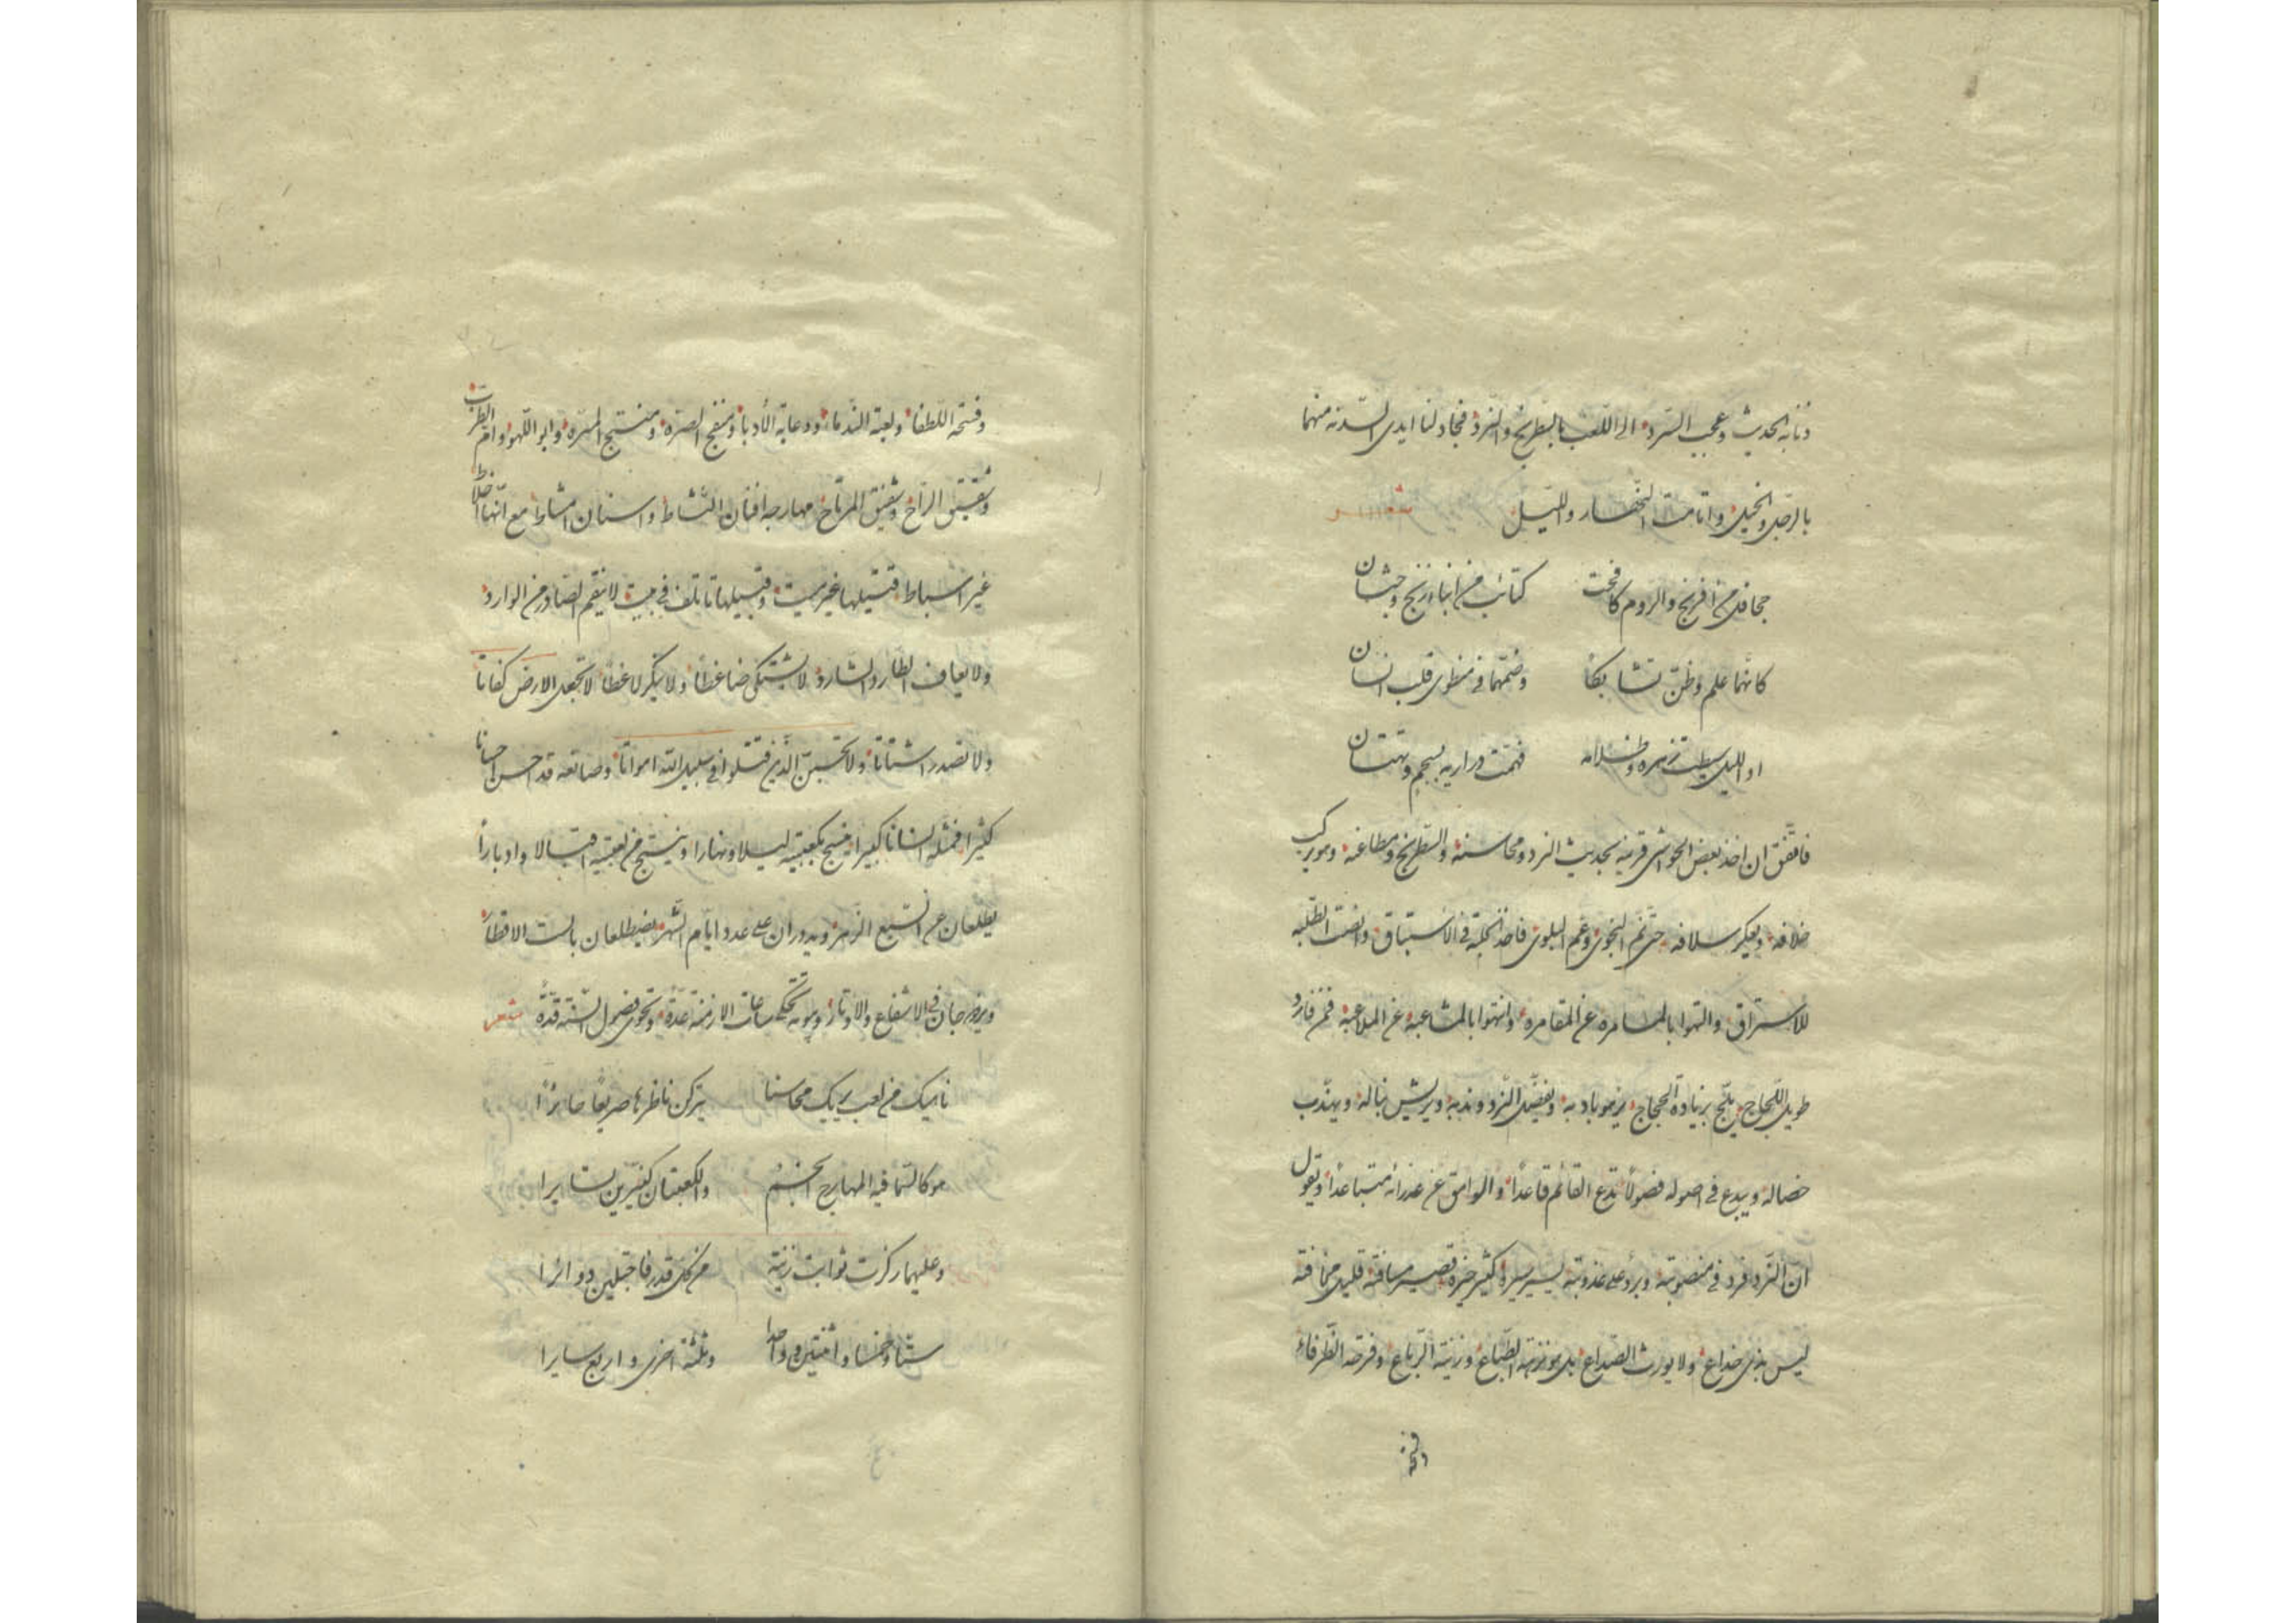 وعجيب السرد الى اللعب بالشطرنج والنرد فجاد لنا ايدى السدنه منهما
بالرجل والخيل واتامت النهار والليل شعر
جحافل من افرنج والروم كافحت كتائب من ابناء زنج وحبشان
كانهما علم وظن تشابكا وضمهما فى منطوى قلب انسان
او الليل زهره وظلامه دراريه بسجم وتهتان
فاتفق ان اخذ بعض الحواشى قرينه بحديث النرد ومحاسنه والشطرنج ومطاعنه وهو يركب
خلافه ويعكر سلافه حتى نم النجوى وعم البلوى فاخذ الحلبة فى الاستباق وانصت الطلبه
للاستراق والتهوا بالمسامره عن المقامره وانتهوا بالمشاعبه عن الملاعبه فمن فارد
طويل اللجاج يلج بزيادة الحجاج يزهو بادبه ويفضل النرد وندبه ويريش نباله ويهذب
خصاله ويبدع فى اصوله فصولا تدع القائم قاعدا والوامق عن عذرائه متباعدا ويقول
ان النرد فرد فى منصوبته وبرد على عذوبته يسير سيره كثير خيره قصير مسافته قليل مخافته
ليس بذى خداع ولا يورث الصداع بل هو نزهة الطباع وزينة الرباع وفرصة الظرفاء
وفتحه
وفتحه اللطفاء ولعبة الندماء ودعابة الأدباء ومنفج الصره ومنتج المسره وابو اللهو وام الطرب
وشقيق الراح وشفيق المرتاح مهارجه افنان النشاط واسنان امشاط مع انها اخلاط
غير اشباط قتيلها غير ميت وقبيلها تأتلف فى بيت لا ينقم الصادر من الوارد
ولا يعاف الطارد الشارد لا يشتكى ضاغطا ولا ينكر لاغطا لا تجعل الارض كفاتا
ولا تصدر اشتاتا ولا تحسبن الذين قتلوا فى سبيل الله امواتا وصانعه قد احسن احسانا
كثيرا فمثله انسانا كبيرا ينسج بكعبيه ليلا ونهارا وينتج من لعبتيه اقبالا وادبارا
يطلعان عن السبع الزهر ويدوران على عدد ايام الشهر يضطلعان بالست الاقطار
ويزدوجان فى الاشفاع والاوتار وبيوته تحكى ساعات الازمنة عدة وتحوى فصول السنة قدة شعر
ناهيك من لعب يريك محاسنا يتركن ناظرها صريعا حائرا
هو كالسما فيه المهارج انجم والكعبتان كنيرين لسايرا
وعليهما ركزت ثوابت زينة من كل قدر فاجتلين دوائرا
ستا وخمسا واثنتين وواحدا وثلثة اخرى واربع سايرا